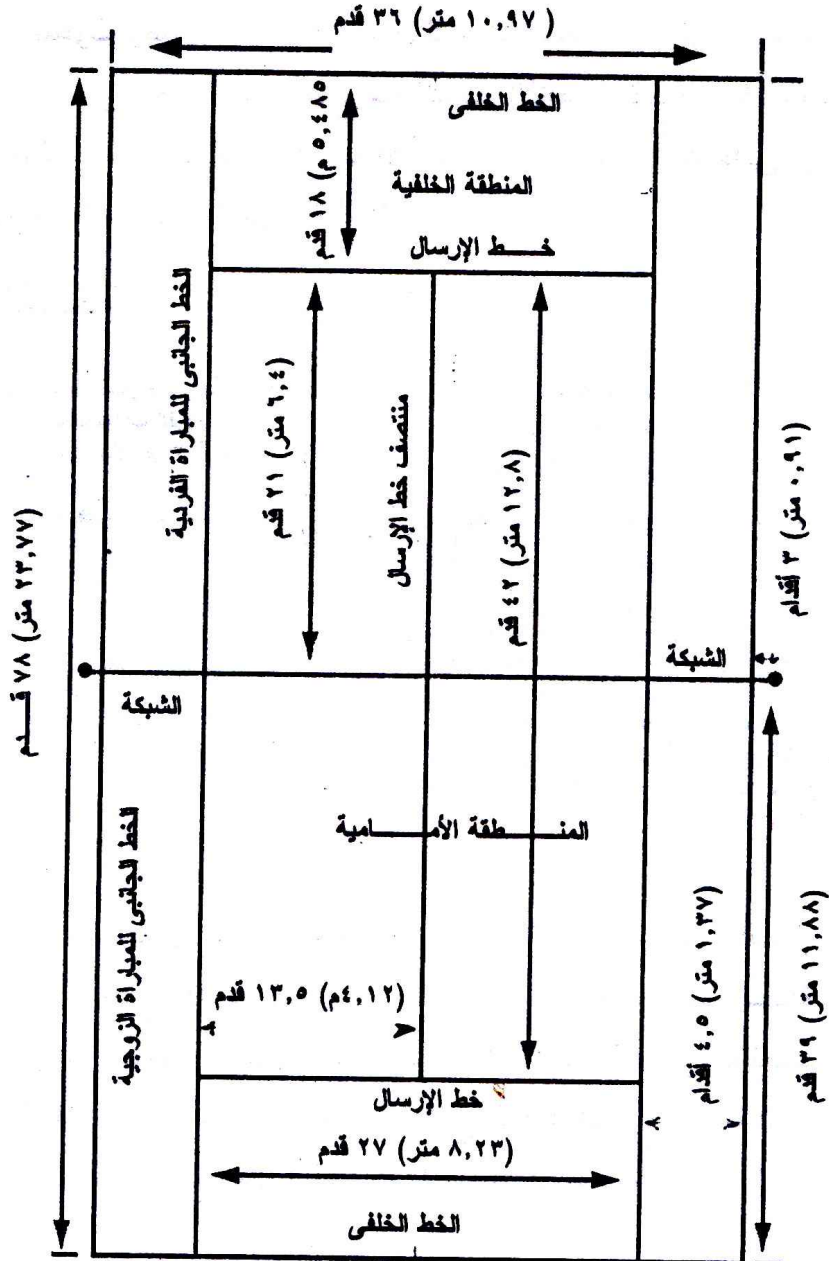 (١٠,٩٧ متر) ٣٦ قدم
الخط الخلفى
(٥,٤٨٥ م) ١٨ قدم
المنطقة الخلفية
خـــط الإرسال
الخط الجانبى للمباراة الفردية
(٦,٤ متر) ٢١ قدم
منتصف خط الإرسال
(١٢,٨ متر) ٤٢ قدم
(٠,٩١ متر) ٣ أقدام
(٢٣,٧٧ متر) ٧٨ قـــدم
الشبكة
الشبكة
المنـــطقة الأمـــامية
الخط الجانبى للمباراة الزوجية
(٤,١٢م) ١٣,٥ قدم
(١,٣٧ متر) ٤,٥ أقدام
(١١,٨٨ متر) ٣٩ قدم
خط الإرسال
(٨,٢٣ متر) ٢٧ قدم
الخط الخلفى